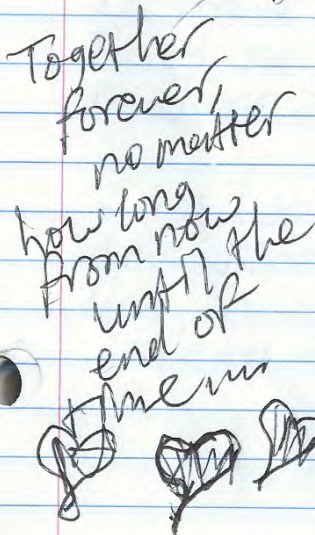 Together
forever,
no matter
how long
from now
until the
end of
time...